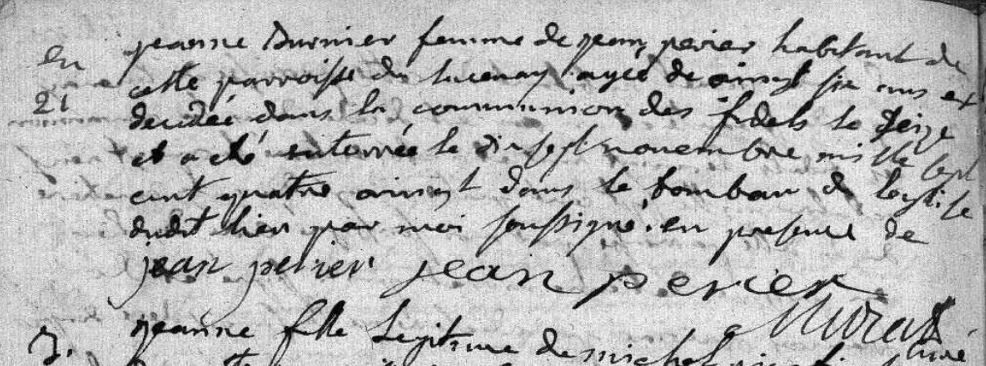 en
21
jeanne Burnier femme de jean perier habitant de
cette parroisse du lucenay agée de vingt six ans est
decedée dans la communion des fidels le seize
et a eté enterrée le dix sept novembre mille sept
cent quatre vingt dans le tombau de leglise
dudit lieu par moi soussigné en presence de
jean perier jean perier
Murat curé
3. jeanne fille legitime de michel